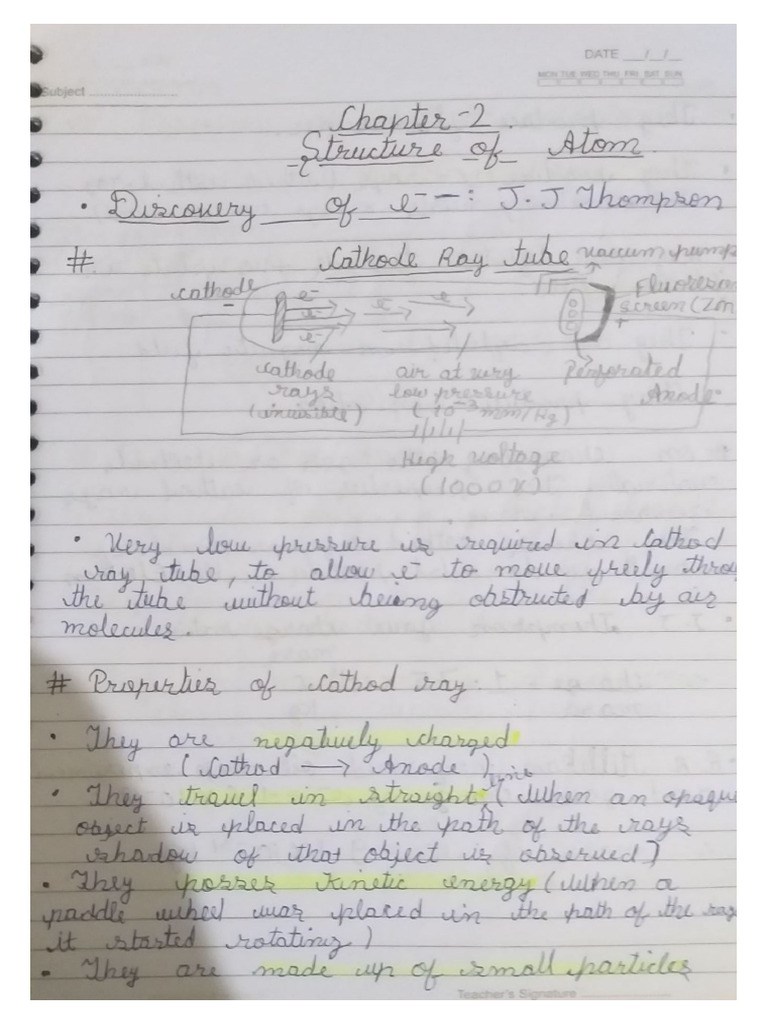 DATE __/__/__
MON TUE WED THU FRI SAT SUN
Subject
Chapter-2
Structure of Atom
• Discovery of e⁻ -: J.J Thompson
# Cathode Ray tube vaccum pump
cathode e⁻ e⁻ e⁻ Fluoresion
- e⁻ e⁻ screen (Zn
+
cathode air at very Perforated
rays low pressure Anode
(invisible) (10⁻³ mm/Hg)
High voltage
(1000 V)
• Very low pressure is required in Cathod
ray tube, to allow e⁻ to move freely throu
the tube without being obstructed by air
molecules.
# Properties of Cathod ray:
• They are negatively charged
(Cathod → Anode)
• They travel in straight line (When an opaque
object is placed in the path of the rays
shadow of that object is observed)
• They posses kinetic energy (When a
paddle wheel was placed in the path of the ray
it started rotating)
• They are made up of small particles
Teacher's Signature